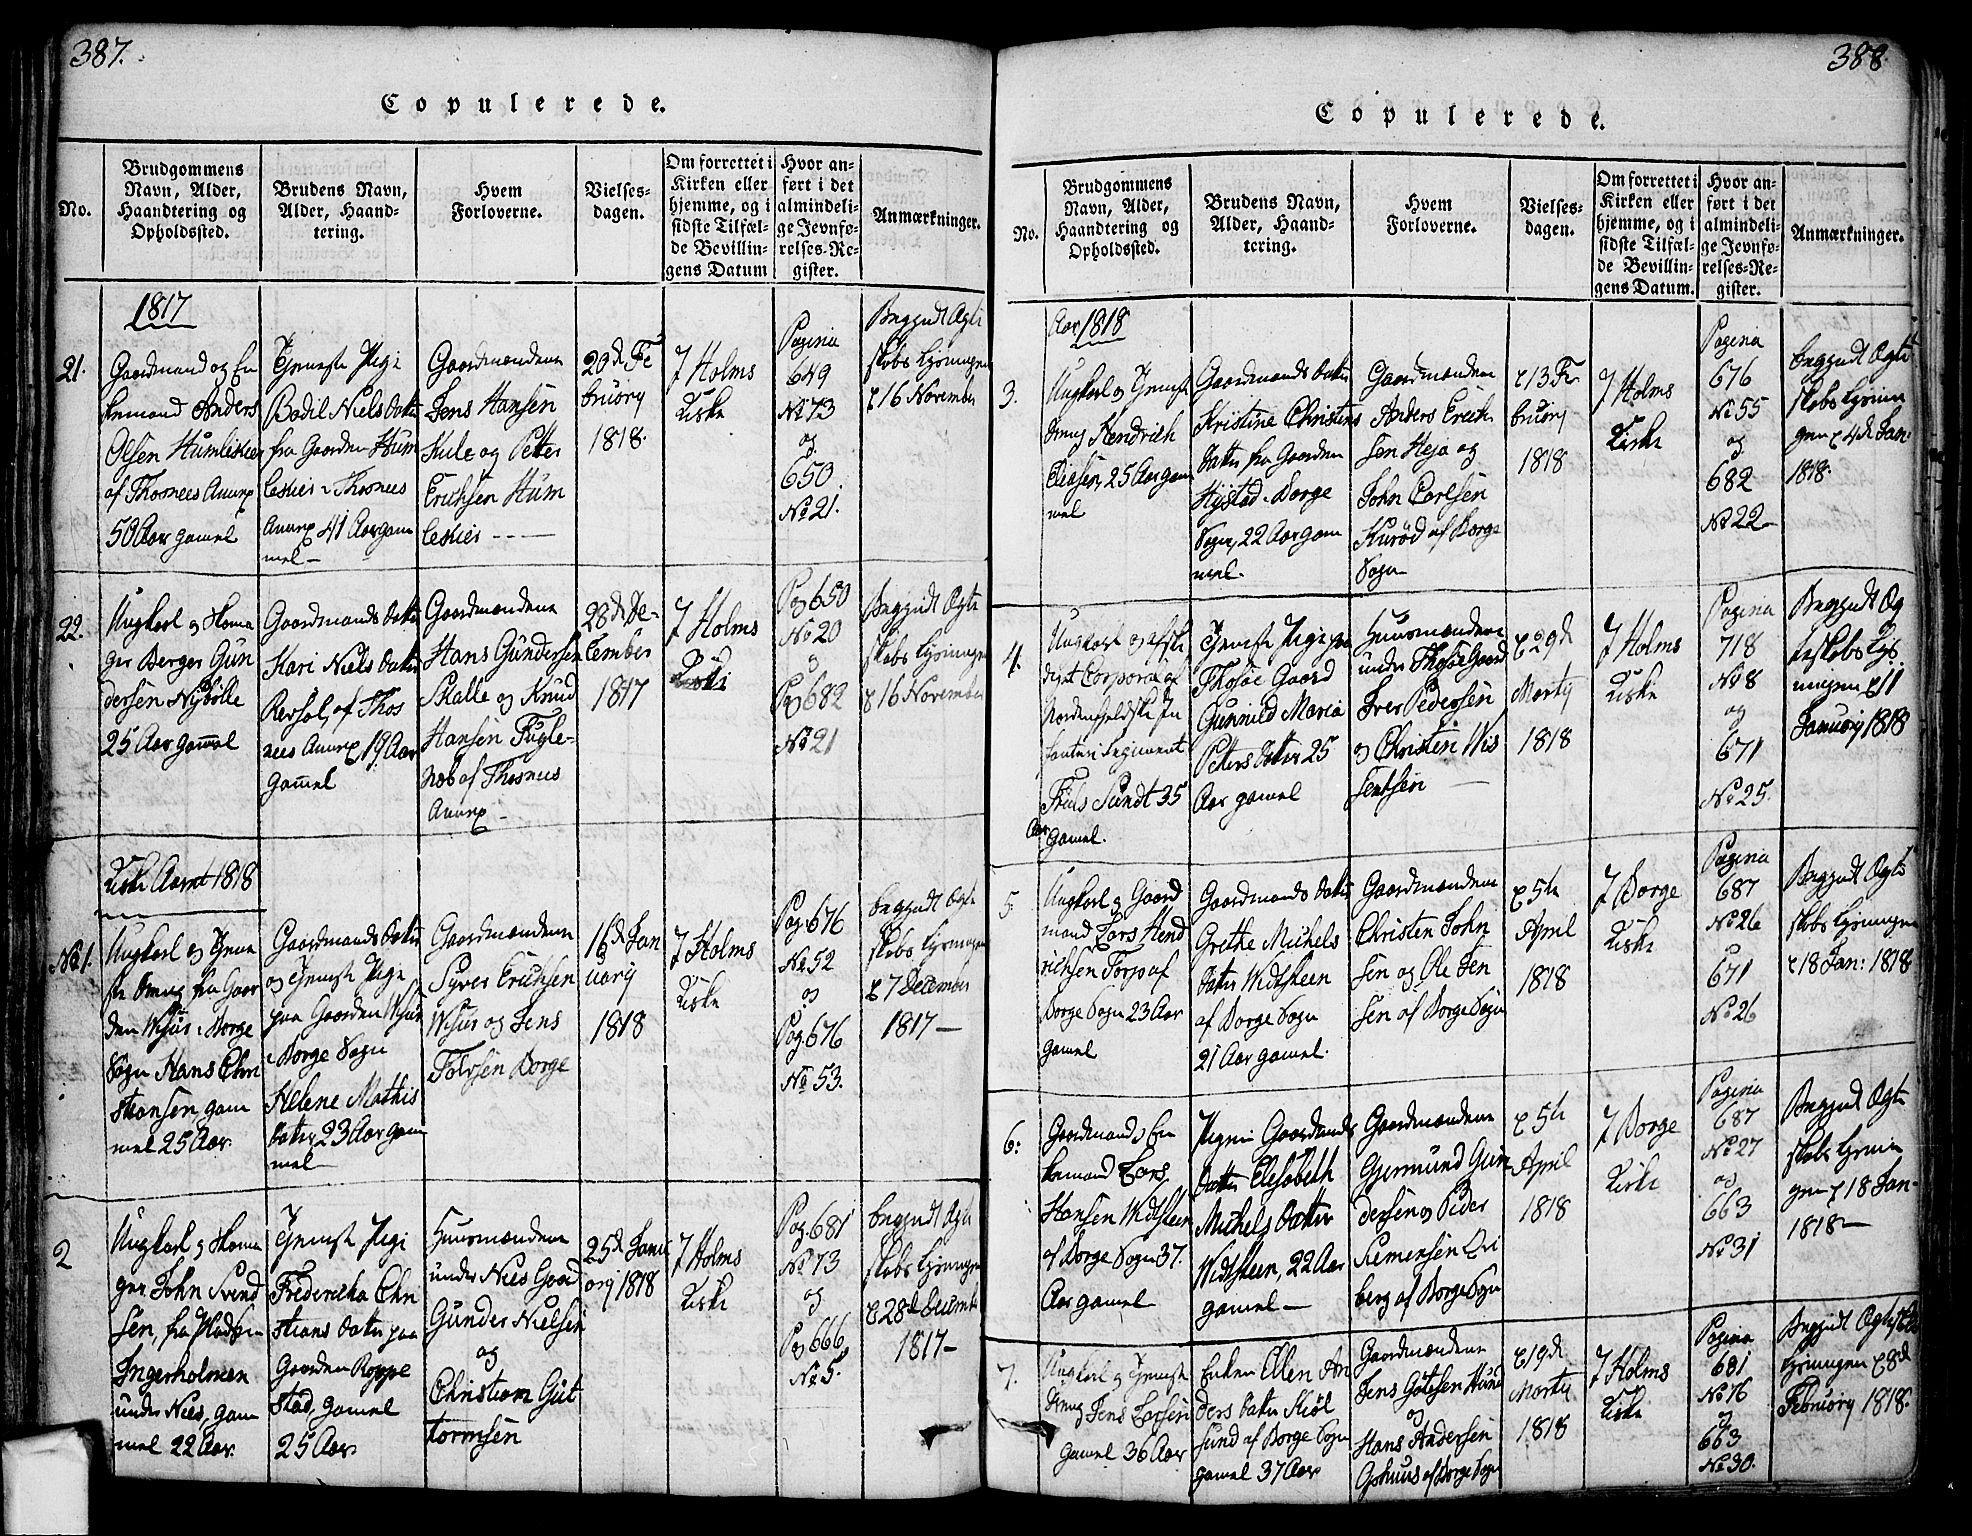 387.
Copulerede.
No.
Brudgommens
Navn, Alder,
Haandtering og
Opholdssted.
Brudens Navn,
Alder, Haand-
tering.
Hvem
Forloverne.
Vielses-
dagen.
Om forrettet i
Kirken eller
hjemme, og i
sidste Tilfæl-
de Bevillin-
gens Datum
Hvor an-
ført i det
almindeli-
ge Jevnfø-
relses-Re-
gister.
Anmærkninger.
1817
21.
Gaardmand og En
kemand Anders
Olsen Humlekier
af Thosnees Annex
50 Aar gamel
Tjeneste Pige
Bodil Niels Datter
fra Gaarden Hum
lekier i Thosnees
Annex 41 Aar gam
mel
Gaardmændene
Jens Hansen
Kule og Petter
Erichsen Hum
lekier
20de Fe
bruary
1818.
I Holms
Kirke
Pagina
649
No 73
og
650
No 21.
Begyndt Ægte
skabs Lysningen
d 16 November
22.
Ungkarl og Skoma
ger Berger Gun
dersen Nybølle
25 Aar gammel
Gaardmands Datter
Kari Niels Datter
af Thos
nees Annex 19 Aar
gammel
Gaardmændene
Hans Gundersen
Skalle og Knud
Hansen Fugle-
af Thosnees
Annex
28de De-
cember
1817
I Holms
Pag 650
No 20
og
Pag 682
No 21
Begyndt Ægte
skabs Lysningen
d 16 November
Kirke Aaret 1818
No 1.
Ungkarl og Tjene
ste Dreng fra Gaar
den i Borge
Sogn Hans Chri
stiansen, gam
mel 25 Aar
Gaardmands Datter
og Tjeneste Pige
paa Gaarden
i Borge Sogn
Helene Mathis
Datter 23 Aar gam
mel
Gaardmændene
Syver Erichsen
og Jens
Borge
16de Jan
uary
1818
I Holms
Kirke
Pag 676
No 52
og
Pag 676
No 53.
begyndt Ægte
skabs Lysningen
d 7 December
1817
2
Ungkarl og Skoma
ger John Svend
sen, fra Pladsen
Ingerholmen
under Nies, gam
mel 22 Aar
Tjeneste Pige
Friderieka Chri
stians Datter paa
Gaarden Roppe
stad, gamel
25 Aar
Huusmændene
under Nies Gaard
Gunder Nielsen
og
Christian Gut
tormsen
25de Janu
ary 1818
I Holms
Kirke
Pag 681
No 73
og
Pag 666
No 5.
begyndt Ægte
skabs Lysningen
d 28de December
1817
388
Copulerede.
No.
Brudgommens
Navn, Alder,
Haandtering og
Opholdssted.
Brudens Navn,
Alder, Haand-
tering.
Hvem
Forloverne.
Vielses-
dagen.
Om forrettet i
Kirken eller
hjemme, og i
sidste Tilfæl-
de Bevillin-
gens Datum.
Hvor an-
ført i det
almindeli-
ge Jevnfø-
relses-Re-
gister.
Anmærkninger.
Aar 1818
3.
Ungkarl og Tjeneste
Dreng Hendrich
Eliasen, 25 Aar gam
mel
Gaardmands Datter
Kristine Christens
Datter fra Gaarden
Hystad i Borge
Sogn, 22 Aar gam
mel.
Gaardmændene
Anders Erich
sen Heja og
John Carlsen
Kurød af Borge
Sogn
d 13 Fe
bruary
1818
I Holms
Kirke
Pagina
676
No 55
og
682
No 22
begyndt Ægte
skabs Lysnin
gen d 4de Jan:
1818.
4.
Ungkarl og afske
diget Corporal af
Nordenfjeldske In
fanteri Regiment
Friis Sundt 35
Aar gamel.
Tjeneste Pige paa
Thosøe Gaard
Gunnild Maria
Petters Datter 25
Aar gamel
Huusmændene
under Thosøe Gaard
Iver Pedersen
og Christen Nis
sensen
d 29de
Marty
1818
I Holms
Kirke
Pagina
718
No 8
og
671
No 25.
Begyndt Æg
teskabs Lys
ningen d 11
January 1818
5
Ungkarl og Gaard
mand Lars Hend
richsen Torp af
Borge Sogn 23 Aar
gamel
Gaardmands Datter
Grethe Michels
Datter Widtsteen
af Borge Sogn
21 Aar gamel.
Gaardmændene
Christen John
sen og Ole Jen
sen af Borge Sogn
d 5te
April
1818
I Borge
Kirke
Pagina
687
No 26
671
No 26
Begyndt Ægte
skabs Lysningen
d 18 Jan: 1818
6.
Gaardmand og En
kemand Lars
Hansen Widtsteen
af Borge Sogn 37.
Aar gamel
Pigen Gaardmands
Datter Elisabeth
Michels Datter
Widtsteen, 22 Aar
gamel
Gaardmændene
Gjermund Gun
dersen og Peder
Simensen Evi
berg af Borge Sogn
d 5te
April
1818
I Borge
Kirke
Pagina
687
No 27
og
663
No 31
Begyndt Ægte
skabs Lysnin
gen d 18 Jan-
1818
7.
Ungkarl og Tjeneste
Dreng Jens Larsen
gamel 36 Aar
Enken Ellen An
ders Datter Kiøl
sund af Borge Sogn
gamel 37 Aar
Gaardmændene
Jens Gutesen Hunn
og
Hans Andersen
af Borge Sogn
d 19de
Marty
1818
I Holms
Kirke
Pagina
681
No 16
og
663
No 30.
Begyndt Ægteskabs
Lysningen d 8de
February 1818.